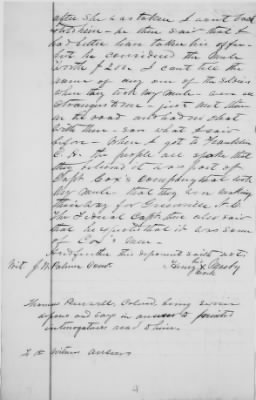 after she was taken I went back
to him - he then said that I
had better have taken his offer -
but he considered the mule
worth $200. I can't tell the
name of any one of the soldiers
when they took my mule - were all
strangers to me - just met them
in the road and had no chat
with them - save what I said
before - When I got to Franklin
C.H. the people all spoke that
they believed it was a part of
Capt. Cox's Company that was with
my mule - that they were making
their way for Greenville N.C.
The Federal Capt. there also said
that he expected that it was some
of Cox's men -
And further this deponent saith not
his
Henry X Crosby
mark
Wit. J. W. Palmer
Thomas Colored, being sworn
deposes and says in answer to printed
interrogatories read to him.
2d witness answers